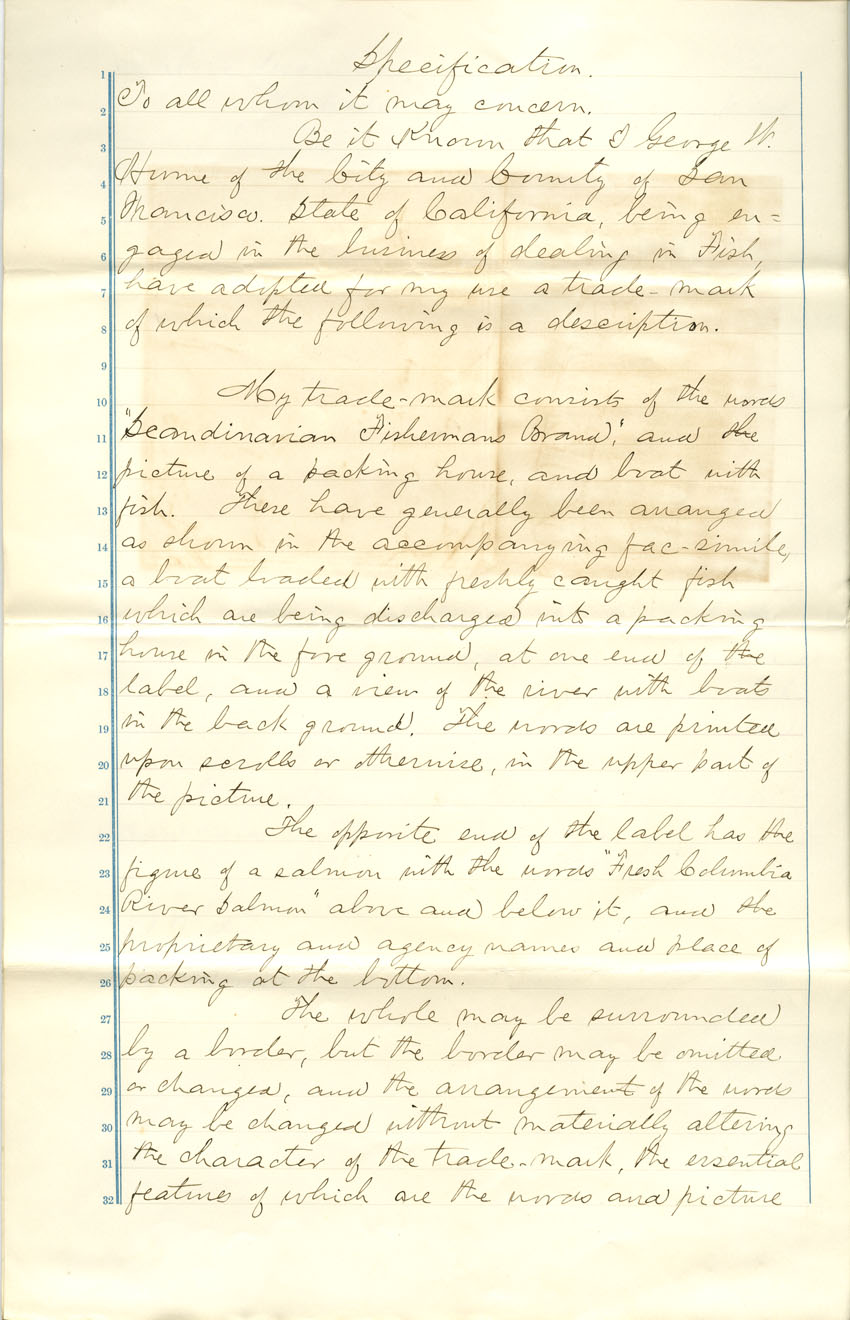 Specification.
1
To all whom it may concern.
2
Be it Known, that I George W.
3
Hume of the City and County of San
4
Francisco. State of California, being en=
5
gaged in the business of dealing in Fish,
6
have adopted for my use a trade-mark
7
of which the following is a description.
8
9
My trade-mark consists of the words
10
"Scandinavian Fishermans Brand," and the
11
picture of a packing house, and boat with
12
fish. These have generally been arranged
13
as shown in the accompanying fac-simile,
14
a boat loaded with freshly caught fish
15
which are being discharged into a packing
16
house in the fore ground, at one end of the
17
label, and a view of the river with boats
18
in the back ground. The words are printed
19
upon scrolls or otherwise, in the upper part of
20
the picture.
21
The opposite end of the label has the
22
figure of a salmon with the words "Fresh Columbia
23
River Salmon" above and below it, and the
24
proprietary and agency names and place of
25
packing at the bottom.
26
The whole may be surrounded
27
by a border, but the border may be omitted
28
or changed, and the arrangement of the words
29
may be changed without materially altering
30
the character of the trade-mark, the essential
31
features of which are the words and picture
32